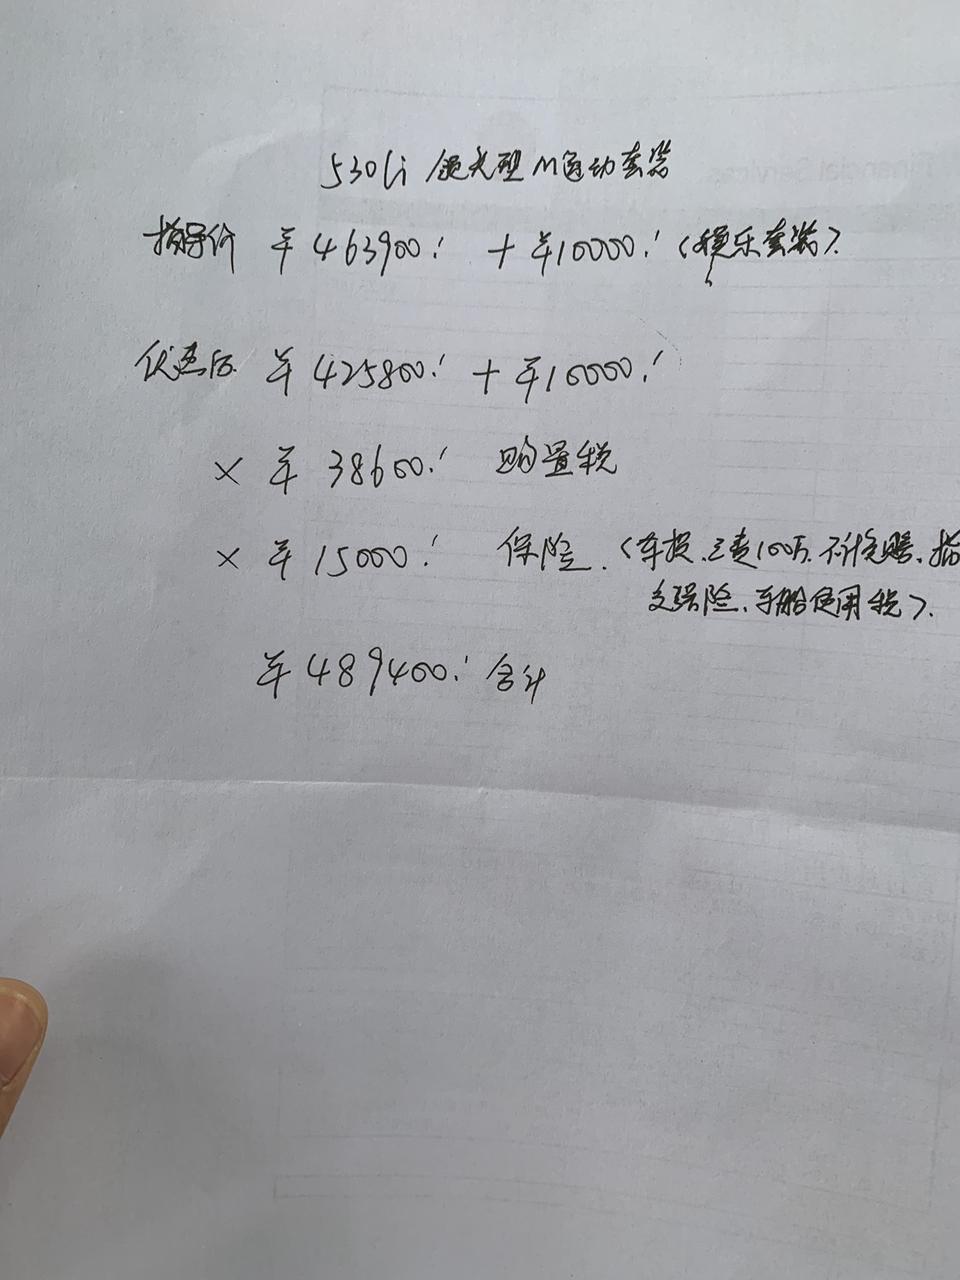 530Li 领先型 M运动套装
指导价 ¥463900.- +¥10000.-(娱乐套装).
优惠后 ¥425800.- +¥10000.-
× ¥38600.- 购置税
× ¥15000.- 保险.(车损.三责100万.不计免赔.
交强险.车船使用税).
¥489400.-合计
Financial Services